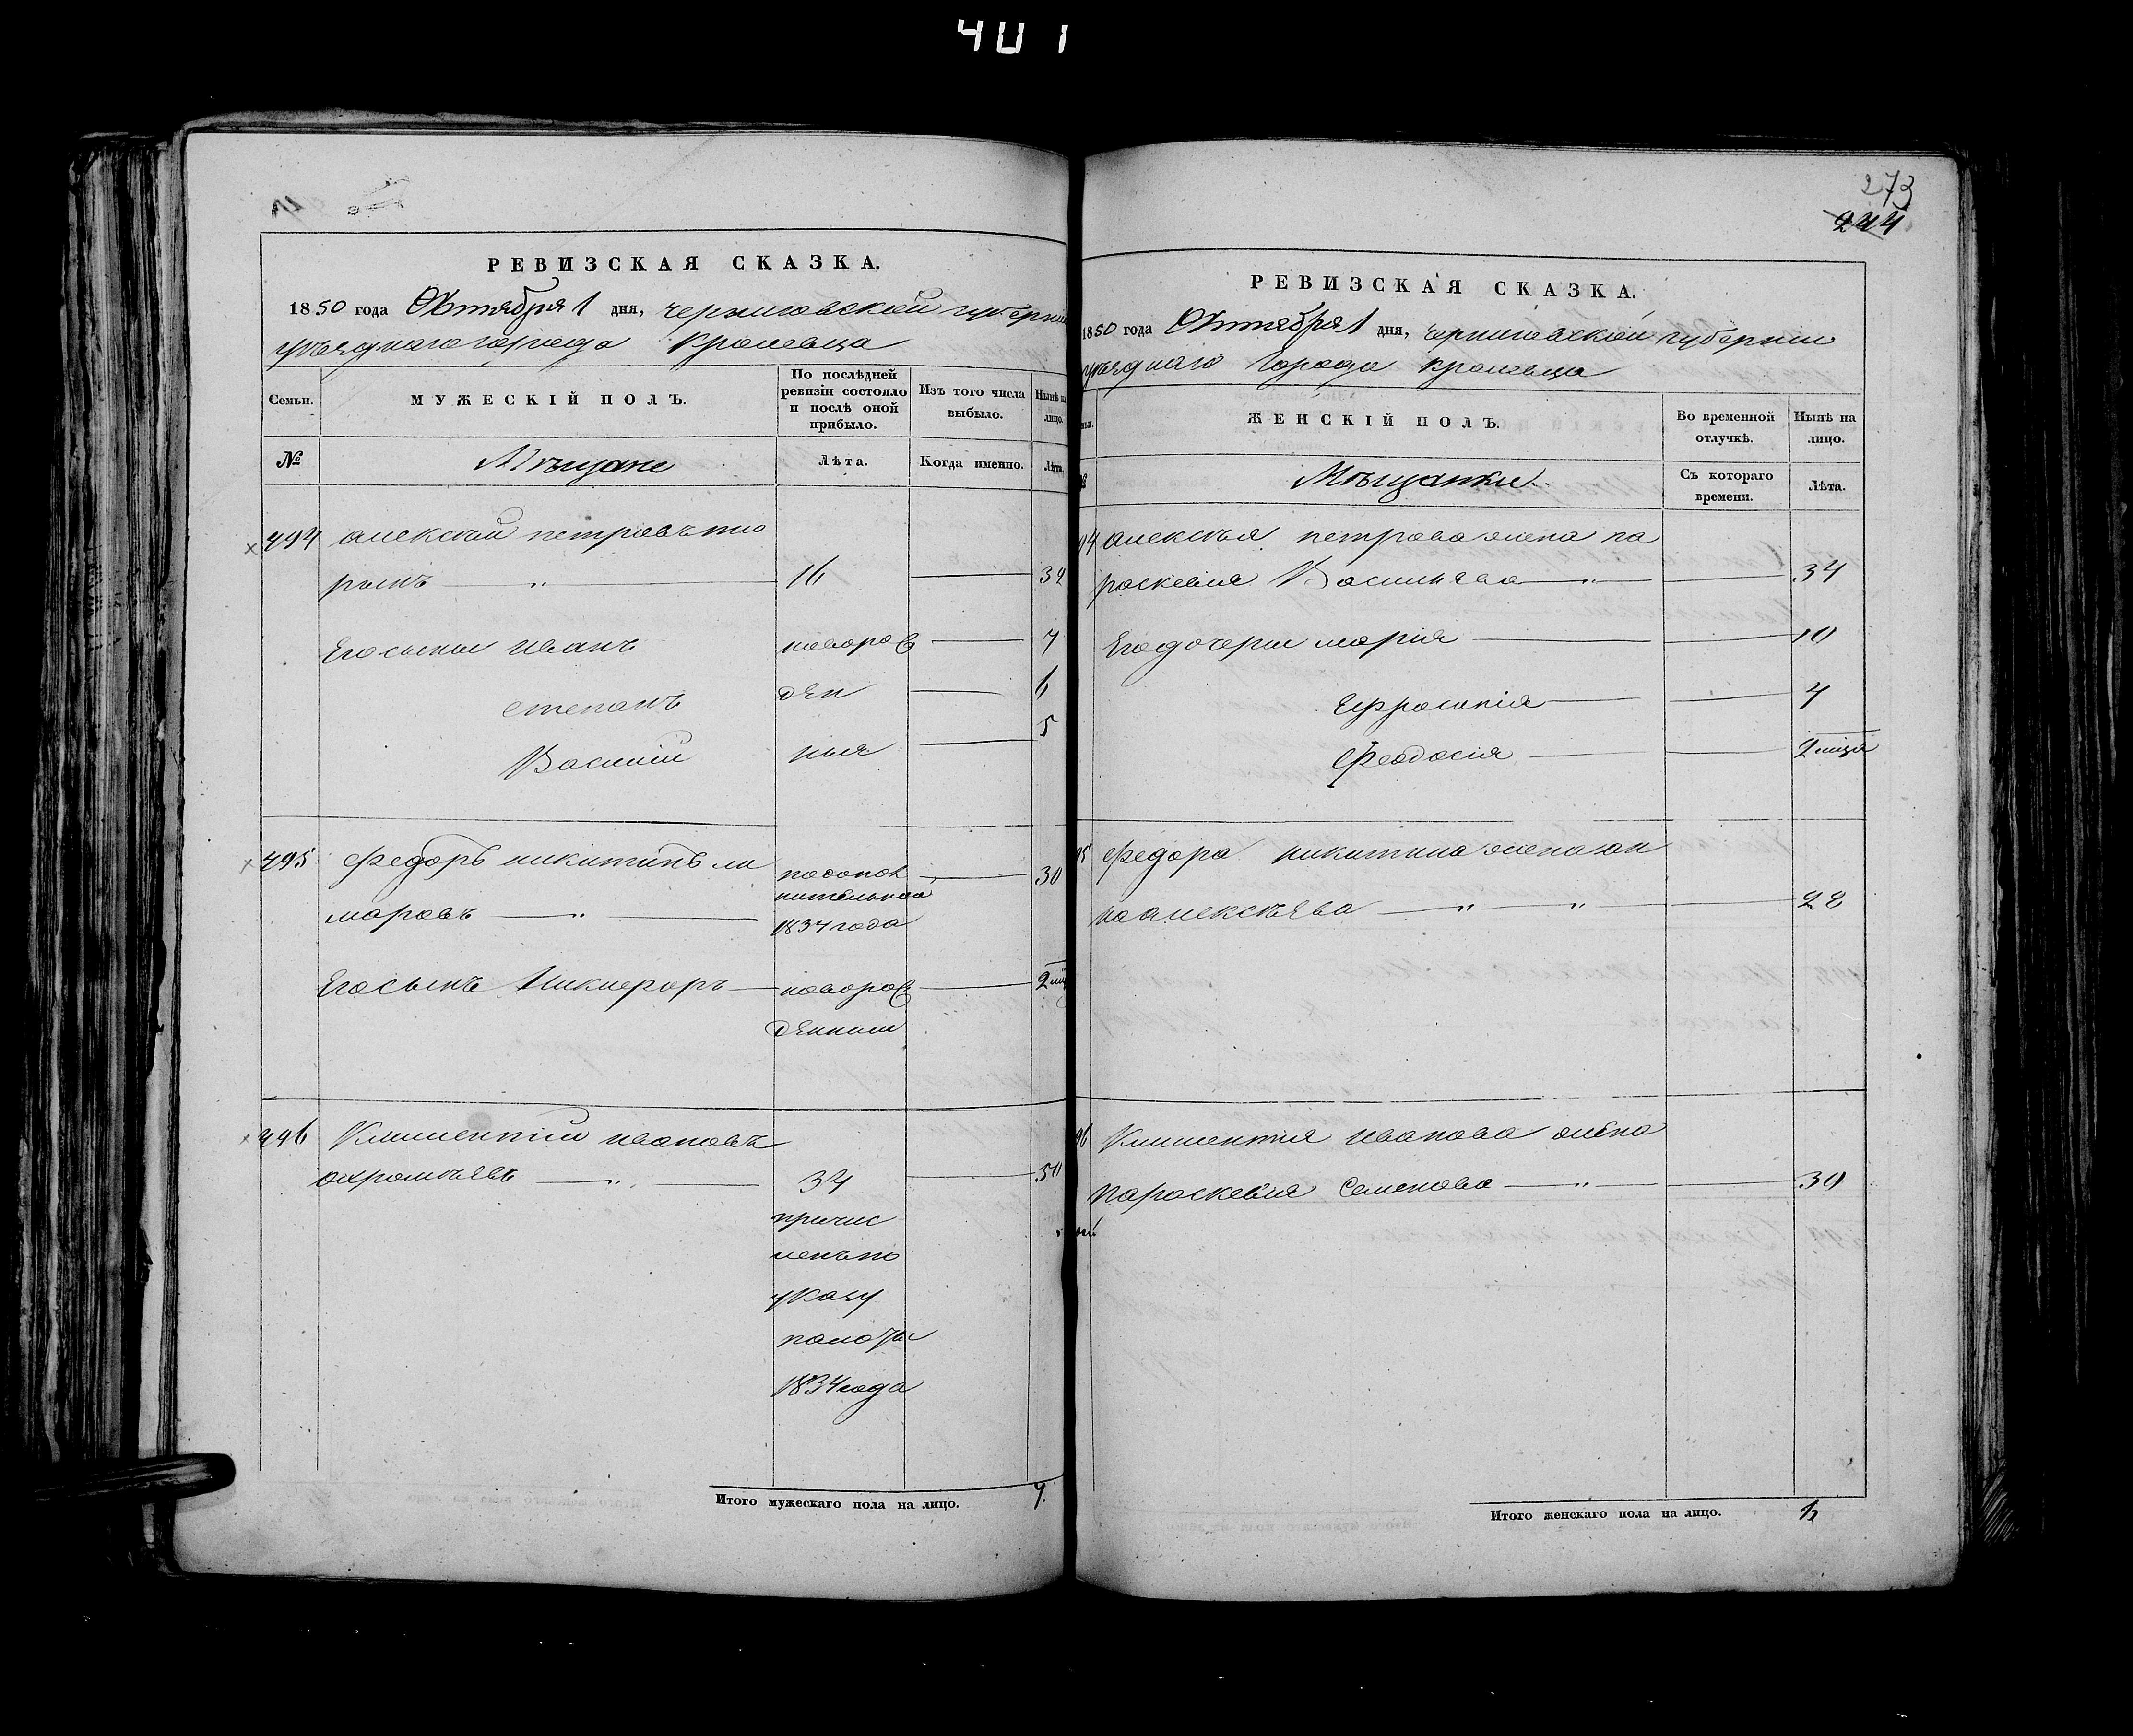 401
РЕВИЗСКАЯ СКАЗКА.
1850 года Октября 1 дня, черниговской губерніи
уѣзднаго города Кролевца
Семьи.
МУЖЕСКІЙ ПОЛЪ.
По послѣдней ревизіи состояло и послѣ оной прибыло.
Изъ того числа выбыло.
Нынѣ на лицо.
№
Мѣщане
Лѣта.
Когда именно.
Лѣта.
494 алексѣй петровъ тю
ринъ 16 32
Его сыны иванъ новорож 7
степанъ ден 6
Василій ныя 5
495 Федоръ никитинъ ли
маровъ по допол нительной 1834 года 30
Его сынъ Никифоръ новорож 2 мц
денный
496 Климентій ивановъ
ахромѣевъ 34 50
причис
ленъ по
указу
палаты
1834 года
Итого мужескаго пола на лицо. 7.
273
244
РЕВИЗСКАЯ СКАЗКА.
1850 года Октября 1 дня, черниговской губерніи
уѣзднаго города кролевца
ЖЕНСКІЙ ПОЛЪ.
Во временной отлучкѣ.
Нынѣ на лицо.
Мѣщанки.
Съ котораго времени.
Лѣта.
94 алексѣя петрова жена па
раскевия Васильева 34
Его дочери марія 10
Ефросинія 4
Феодосія 2 мця
95 Федора никитина жена ан
на алексѣева 28
96 Климентия иванова жена
параскевия Семенова 30
Итого женскаго пола на лицо. 6